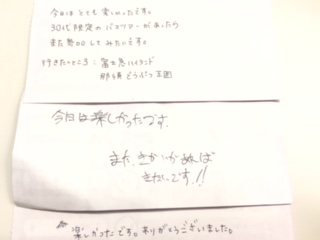 今日はとても楽しかったです。
30代限定のバスツアーがあったら
また参加してみたいです。
行きたいところ：富士急ハイランド
那須どうぶつ王国
今日は楽しかったです。
また、きかいがあれば
きたいです!!
楽しかったです。ありがとうございました。